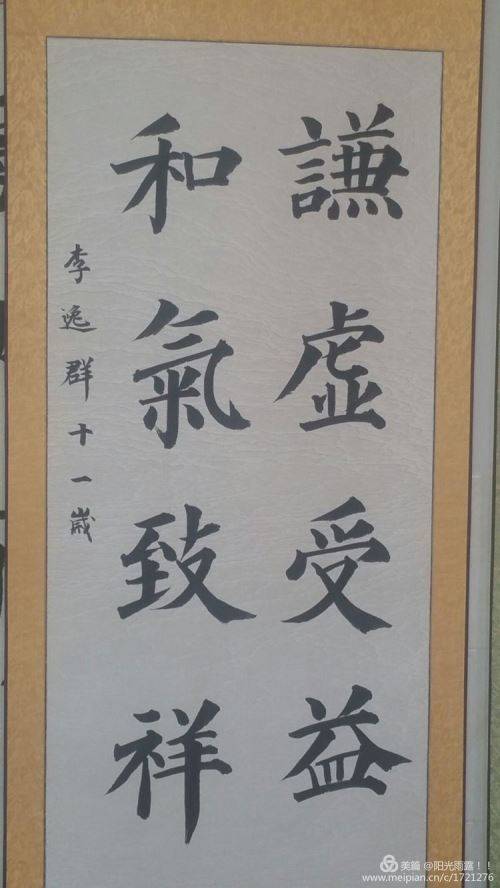 謙虛受益
和氣致祥
李逸群十一歲
美篇 @阳光雨露！！
www.meipian.cn/c/1721276